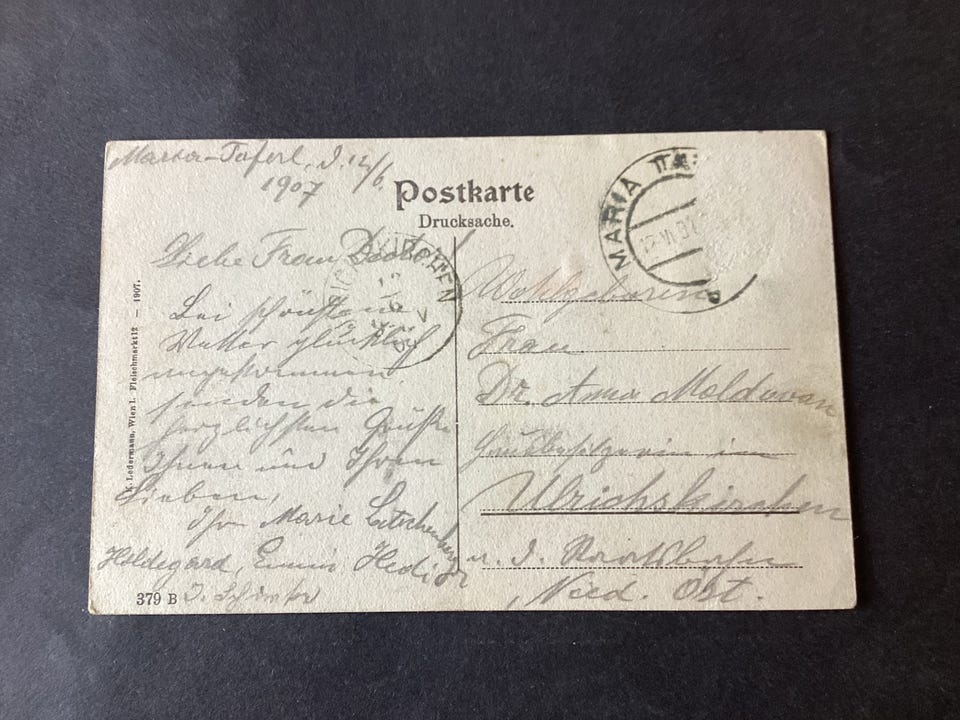 Maria-Taferl, d. 12/6.
1907
Postkarte
Drucksache.
MARIA TA
12 VI 07
Liebe Frau Doctor!
Bei schönstem
Wetter glücklich
angekommen
senden die
herzlichsten Grüße
Ihnen und Ihren
Lieben,
Ihre Marie
Hildegard, Hedi
KIRCHEN
Wohlgeboren
Frau
Dr. Anna Molduvan
Hausbesitzerin in
Ulrichskirchen
a. d. Staatsbahn
Nied. Öst.
K. Ledermann, Wien I. Fleischmarkt 12 — 1907.
379 B